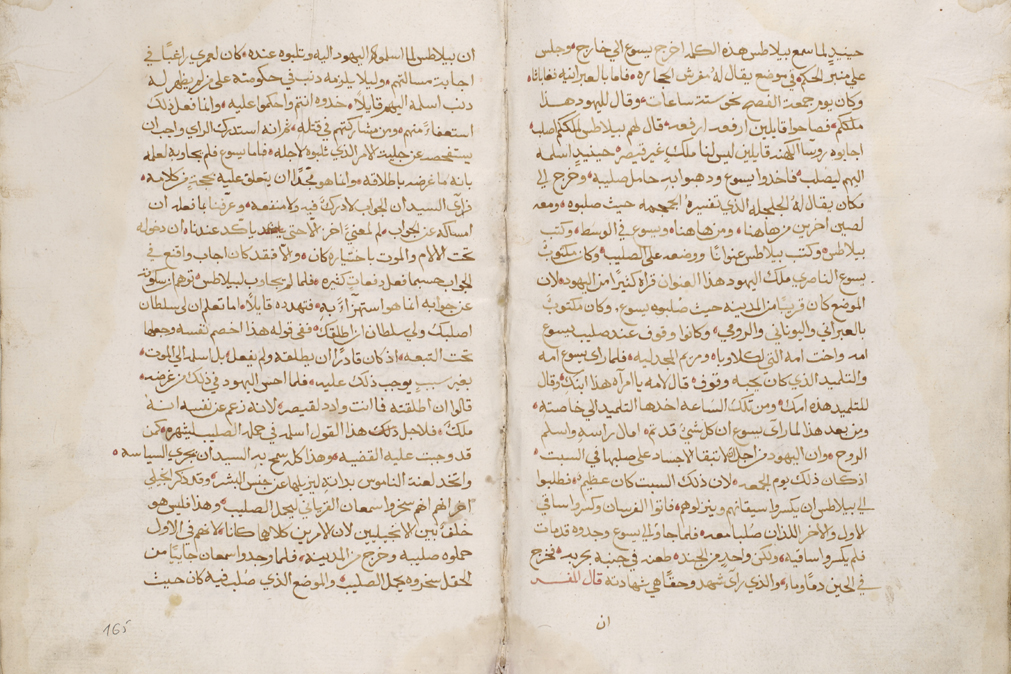 حينيذٍ لما سمع بيلاطس هذه الكلمه اخرج يسوع الى خارج وجلس
على منبر الحكم في موضع يقال له مفرش الحجاره فاما بالعبرانيه فغاباثا
وكان يوم جمعة الفصح نحو ستة ساعات وقال لليهود هذا
ملككم فصاحوا قايلين ارفعه ارفعه قال لهم بيلاطس لملككم اصلب
اجابوه روسا الكهنه قايلين ليس لنا ملك غير قيصر حينيذٍ اسلمه
اليهم ليصلب فاخذوا يسوع وذهبوا به حامل صليبه وخرج الى
مكان يقال له الجلجله الذي تفسيره الجمجمه حيث صلبوه ومعه
لصين اخرين من هاهنا ومن هاهنا ويسوع في الوسط وكتب
بيلاطس وكتب بيلاطس عنوانًا ووضعه على الصليب وكان مكتوب
يسوع الناصري ملك اليهود هذا العنوان قراه كثيرًا من اليهود لان
الموضع كان قريبًا من المدينه حيث صلبوه يسوع وكان مكتوبٌ
بالعبراني واليوناني والرومي وكانوا وقوف عند صليب يسوع
امه واخت امه التي لكلاوبا ومريم المجدليه فلما راى يسوع امه
والتلميد الذي كان يحبه وقوف قال لامه يا امرآه هذا ابنك وقال
للتلميد هذه امك ومن تلك الساعه اخدها التلميد الى خاصته
ومن بعد هذا لما راى يسوع ان كل شيٍ قد تم امال راسه واسلم
الروح وان اليهود من اجل لا تبقا الاجساد على صلبها في السبت
اذ كان ذلك يوم الجمعه لان ذلك السبت كان عظيم فطلبوا
الى بيلاطس ان يكسروا سيقانهم وينزلوهم فاتوا الفرسان وكسروا ساقي
الاول والاخر اللذان صلبا معه فلما جاوا الى يسوع وجدوه قد مات
فلم يكسروا ساقيه ولكن واحدٍ من الجند طعنه في جنبه بحربه فخرج
في الحين دمًا وما والذي راى شهد وحقًا هي شهادته قال المفسر
ان
ان بيلاطس لما اسلموه اليهود اليه وتلبوه عنده كان لعمري راغبًا في
اجابت مسالتهم وليلا يلزمه دنب في حكومته على من لم يظهر له
دنب اسلمه اليهم قايلاً خدوه انتم واحكموا عليه وانما فعل ذلك
استعفاءً عنهم ومن مشاركتهم في قتله ثم انه استدرك الراي واحب ان
يستفحص عن جلية الامر الذي تلبوه لاجله فاما يسوع فلم يجاوبه لعلمه
بانه ما غرضه باطلاقه وانما هو مجدًا ان يتعلق عليه بحجت من كلامه
فراى السيد ان الجواب لا درك فيه ولا منفعه وعرفنا بما فعله ان
امساكه عن الجواب لم لمعنىً اخر الا حتى يتاكد عندنا ان دخوله
تحت الالام والموت باختياره كان والا فقد كان اجاب واقع في
الجواب حسبما فعل دفعات كثيره فلما لم يجاوب لبيلاطس توهم ان سكوته
عن جوابه انما هو استهزاءً به فتهدده قايلاً اما تعلم ان لي سلطان
اصلبك ولي سلطان ان اطلقك ففي قوله هذا اخصم نفسه وجعلها
تحت التبعه اذ كان قادرًا ان يطلقه ولم يفعل بل اسلمه الى الموت
بغير سببٍ يوجب ذلك عليه فلما احس اليهود في ذلك من غرضه
قالوا ان اطلقته فما انت وادد لقيصر لانه زعم عن نفسه انه
ملك فلاجل ذلك هذا القول اسلمه في حمله الصليب ليشهره كمن
قد وجبت عليه القضيه وهذا كله سمح به السيد ان يجري السياسه
واتخد لعنة الناموس بداته ليزيلها عن جنس البشر وقد ذكر انجيلي
اخر انهم سخروا سمعان القرياني ليحمل الصليب وهذا فليس هو
خلفٌ بين الانجيليين لان الامرين كلاهما كانا لانهم في الاول
حملوه صليبه وخرج من المدينه فلما وجدوا سمعان جاييًا من
الحقل سخروه بحمل الصليب والموضع الذي صلب فيه كان حيث
165